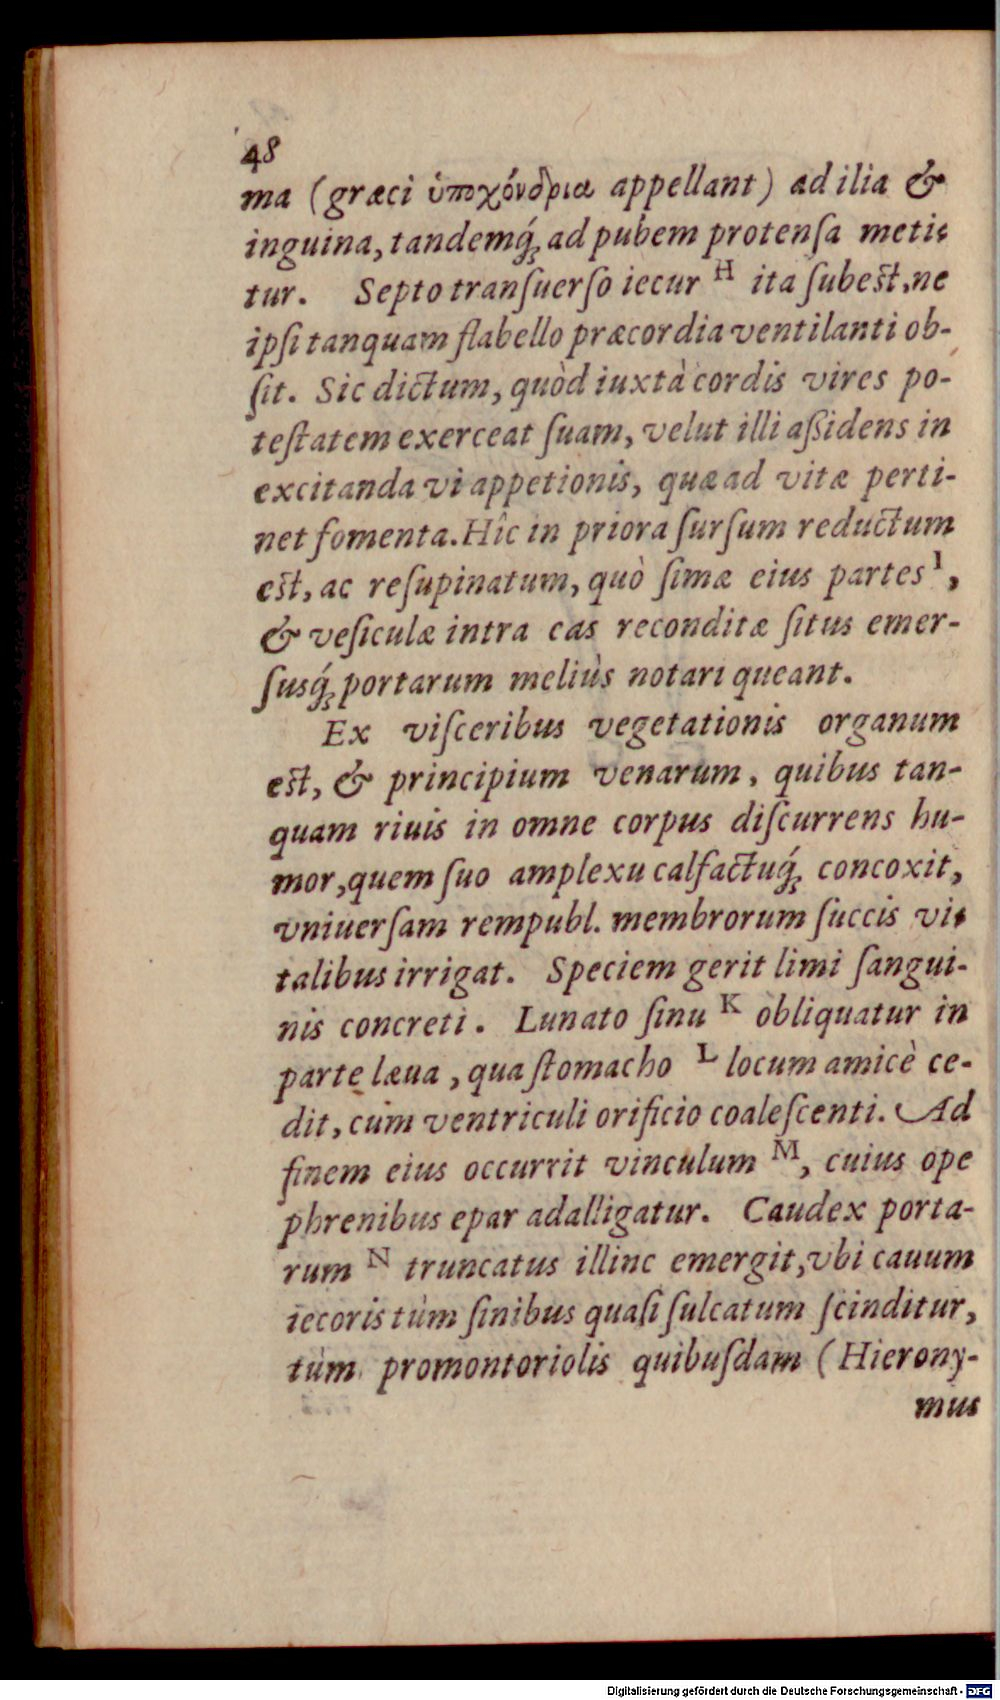 48
ma (græci ὑποχόνδρια appellant) ad ilia &
inguina, tandemq́ꝫ ad pubem protenſa meti-
tur. Septo tranſuerſo iecur H ita ſubeſt, ne
ipſi tanquam flabello præcordia ventilanti ob-
ſit. Sic dictum, quòd iuxtà cordis vires po-
teſtatem exerceat ſuam, velut illi aßidens in
excitanda vi appetionis, quæ ad vitæ perti-
net fomenta. Hîc in priora ſurſum reductum
eſt, ac reſupinatum, quò ſimæ eius partes I,
& veſiculæ intra eas reconditæ ſitus emer-
ſusq́ꝫ portarum meliùs notari queant.
Ex viſceribus vegetationis organum
eſt, & principium venarum, quibus tan-
quam riuis in omne corpus diſcurrens hu-
mor, quem ſuo amplexu calfactuq́ꝫ concoxit,
vniuerſam rempubl. membrorum ſuccis vi-
talibus irrigat. Speciem gerit limi ſangui-
nis concreti. Lunato ſinu K obliquatur in
parte læua, qua ſtomacho L locum amicè ce-
dit, cùm ventriculi orificio coaleſcenti. Ad
finem eius occurrit vinculum M, cuius ope
phrenibus epar adalligatur. Caudex porta-
rum N truncatus illinc emergit, vbi cauum
iecoris tùm ſinibus quaſi ſulcatum ſcinditur,
tùm promontoriolis quibuſdam (Hierony-
mus
Digitalisierung gefördert durch die Deutsche Forschungsgemeinschaft - DFG